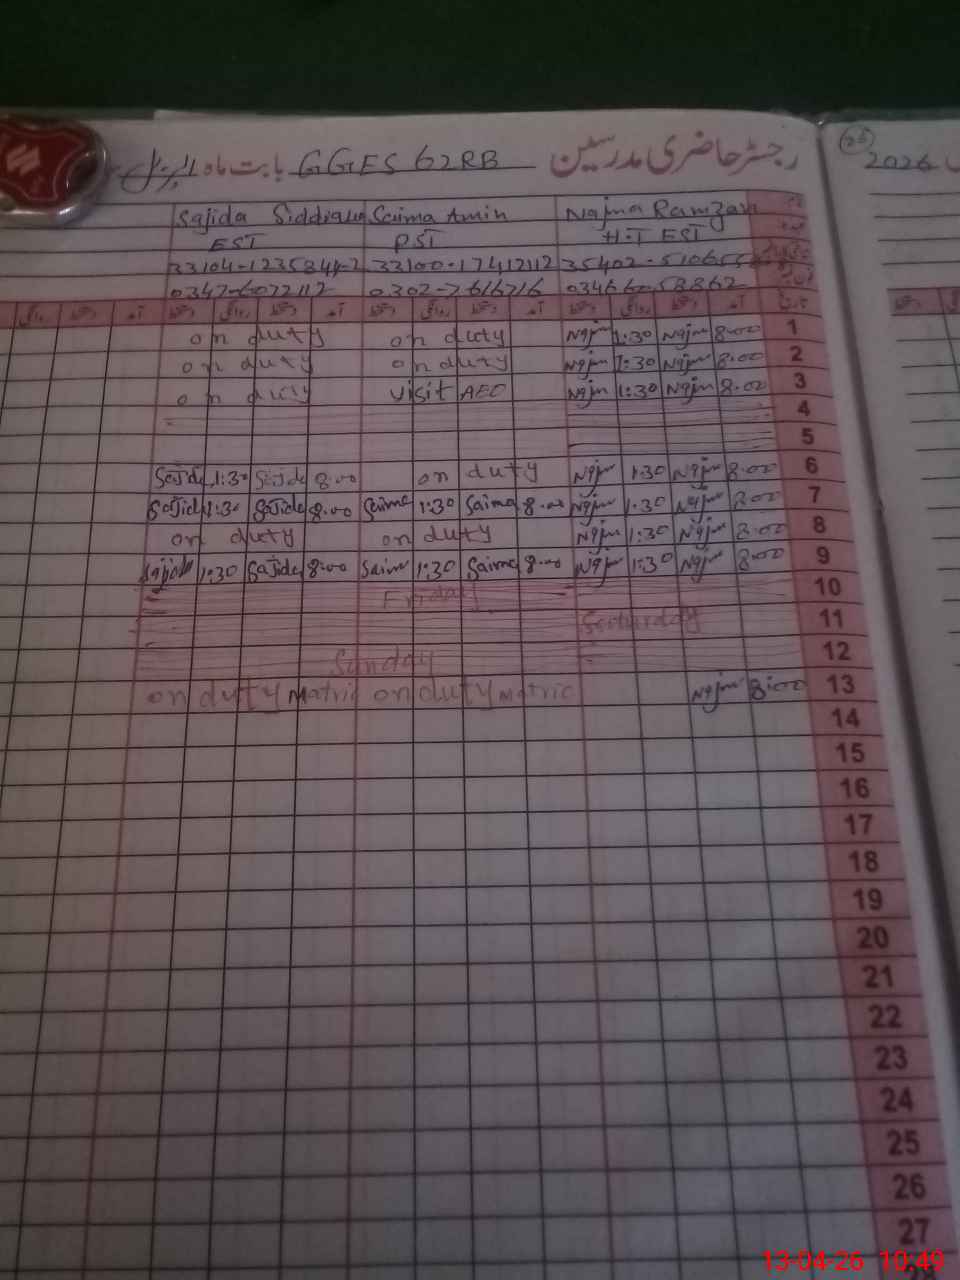 رجسٹر حاضری مدرسین GGES 62RB بابت ماہ اپریل
26 2026
Najma Ramzan Saima Amin Sajida Siddiqua
H.T EST PST EST
33100-17412112
03466058862 0302-7616716 0347-6072112
تاریخ آمد دستخط روانگی دستخط آمد دستخط روانگی دستخط آمد دستخط روانگی دستخط آمد دستخط روانگی دستخط
1 8:00 Najm 1:30 Najm on duty on duty
2 8:00 Najm 1:30 Najm on duty on duty
3 8:00 Najm 1:30 Najm visit AEO on duty
4
5
6 8:00 Najm 1:30 Najm on duty 8:00 Sajida 1:30 Sajida
7 8:00 Najm 1:30 Najm 8:00 Saima 1:30 Saima 8:00 Sajida 1:30 Sajida
8 8:00 Najm 1:30 Najm on duty on duty
9 8:00 Najm 1:30 Najm 8:00 Saima 1:30 Saim 8:00 Sajida 1:30 Sajida
10 Friday
11 Saturday
12 Sunday
13 8:00 Najm on duty matric on duty matric
14
15
16
17
18
19
20
21
22
23
24
25
26
27
13-04-26 10:49